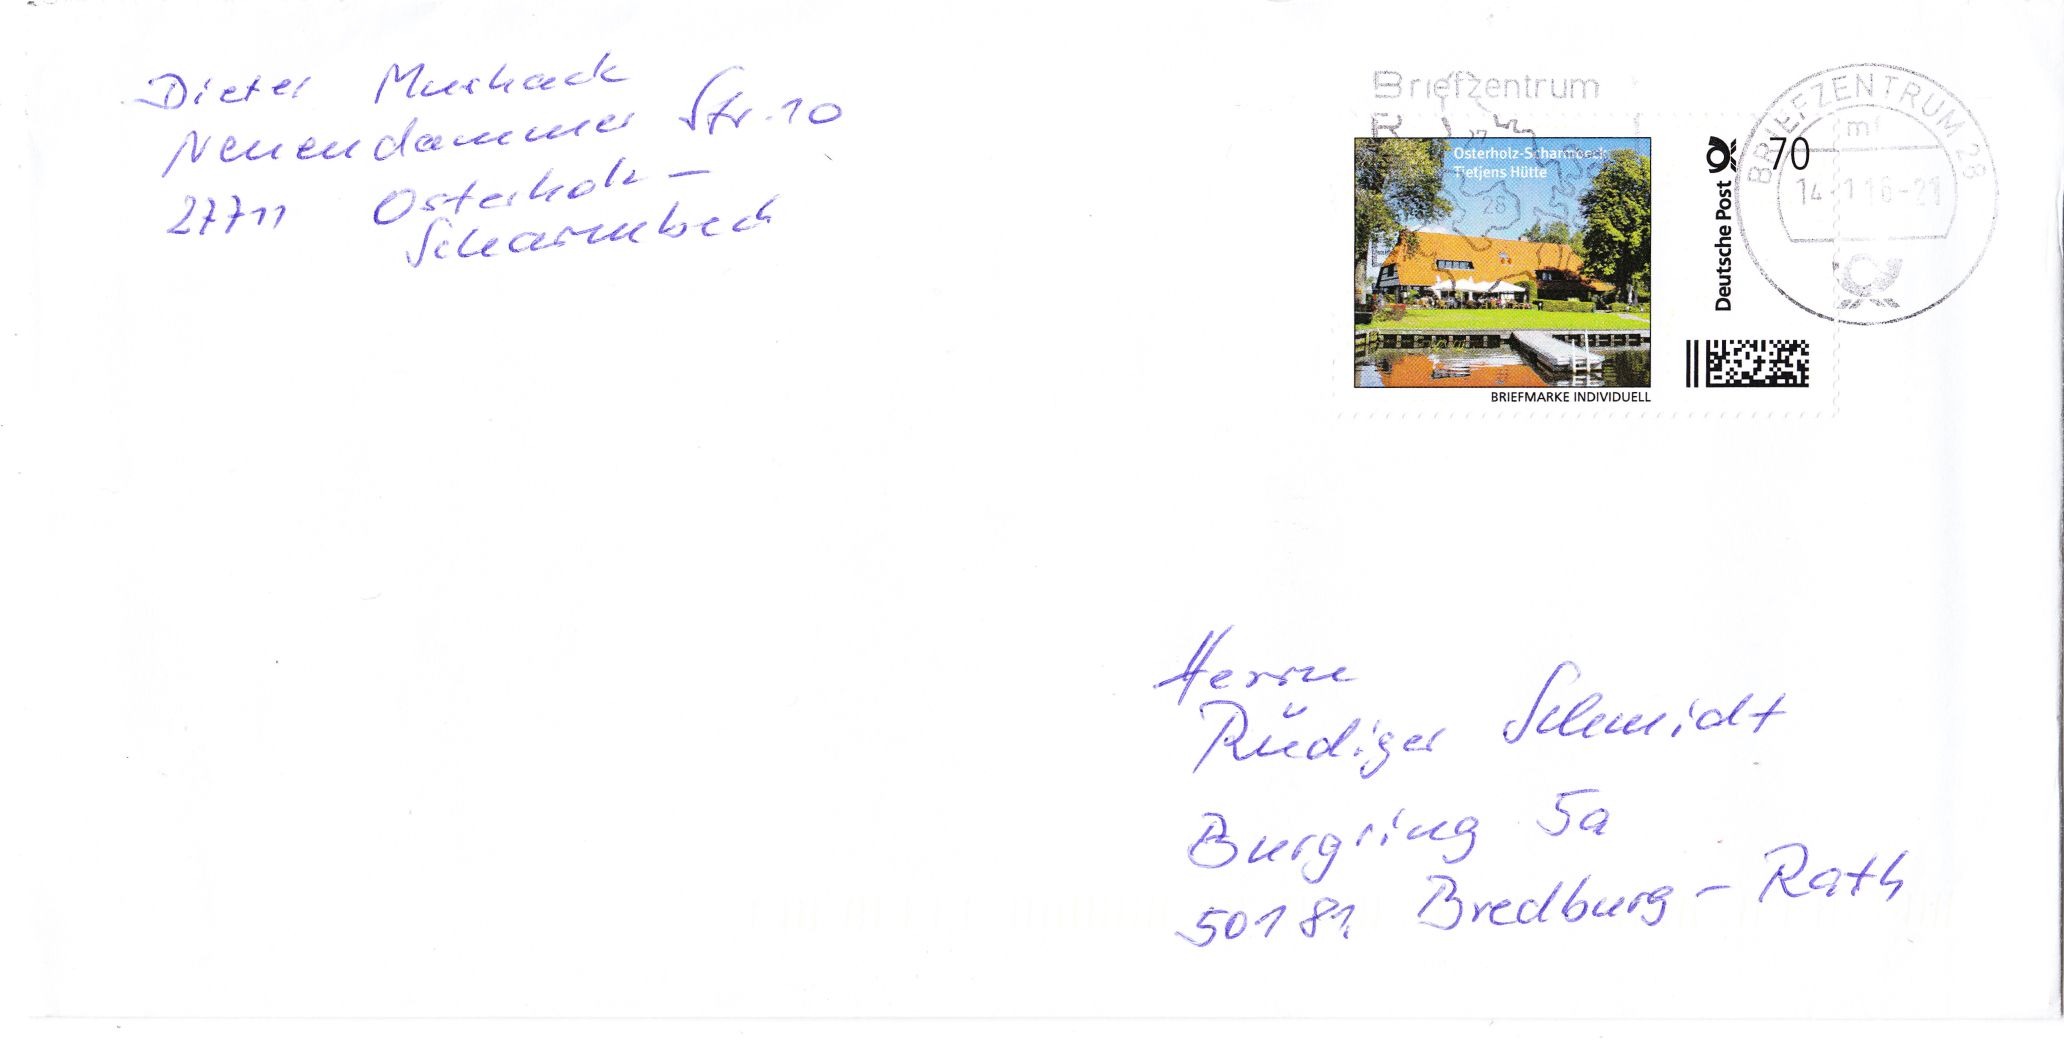 Dieter Mushack
Neuendammer Str. 10
27711 Osterholz-
Scharmbeck
Briefzentrum
28
Osterholz-Scharmbeck
Tietjens Hütte
BRIEFMARKE INDIVIDUELL
Deutsche Post
70
BRIEFZENTRUM 28
mf
Herrn
Rüdiger Schmidt
Burgring 5a
50181 Bredburg-Rath